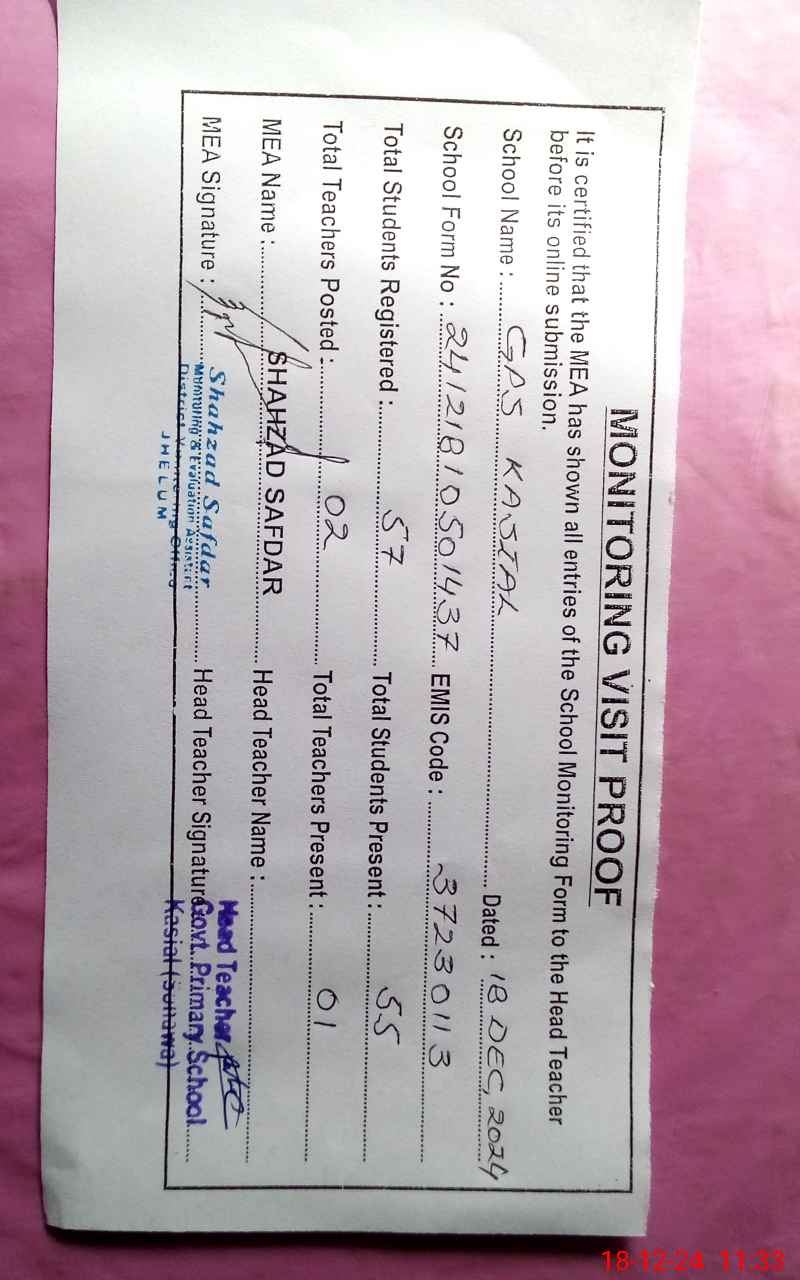 MONITORING VISIT PROOF
It is certified that the MEA has shown all entries of the School Monitoring Form to the Head Teacher
before its online submission.
School Name : GPS KASIAL Dated : 18 DEC, 2024
School Form No : 24121810501437 EMIS Code : 37230113
Total Students Registered : 57 Total Students Present : 55
Total Teachers Posted : 02 Total Teachers Present : 01
MEA Name : SHAHZAD SAFDAR Head Teacher Name :
MEA Signature : Head Teacher Signature
Shahzad Safdar
Monitoring & Evaluation Assistant
District Monitoring Office
JHELUM
Head Teacher
Govt. Primary School
Kasial (Sohawa)
18-12-24 11:33